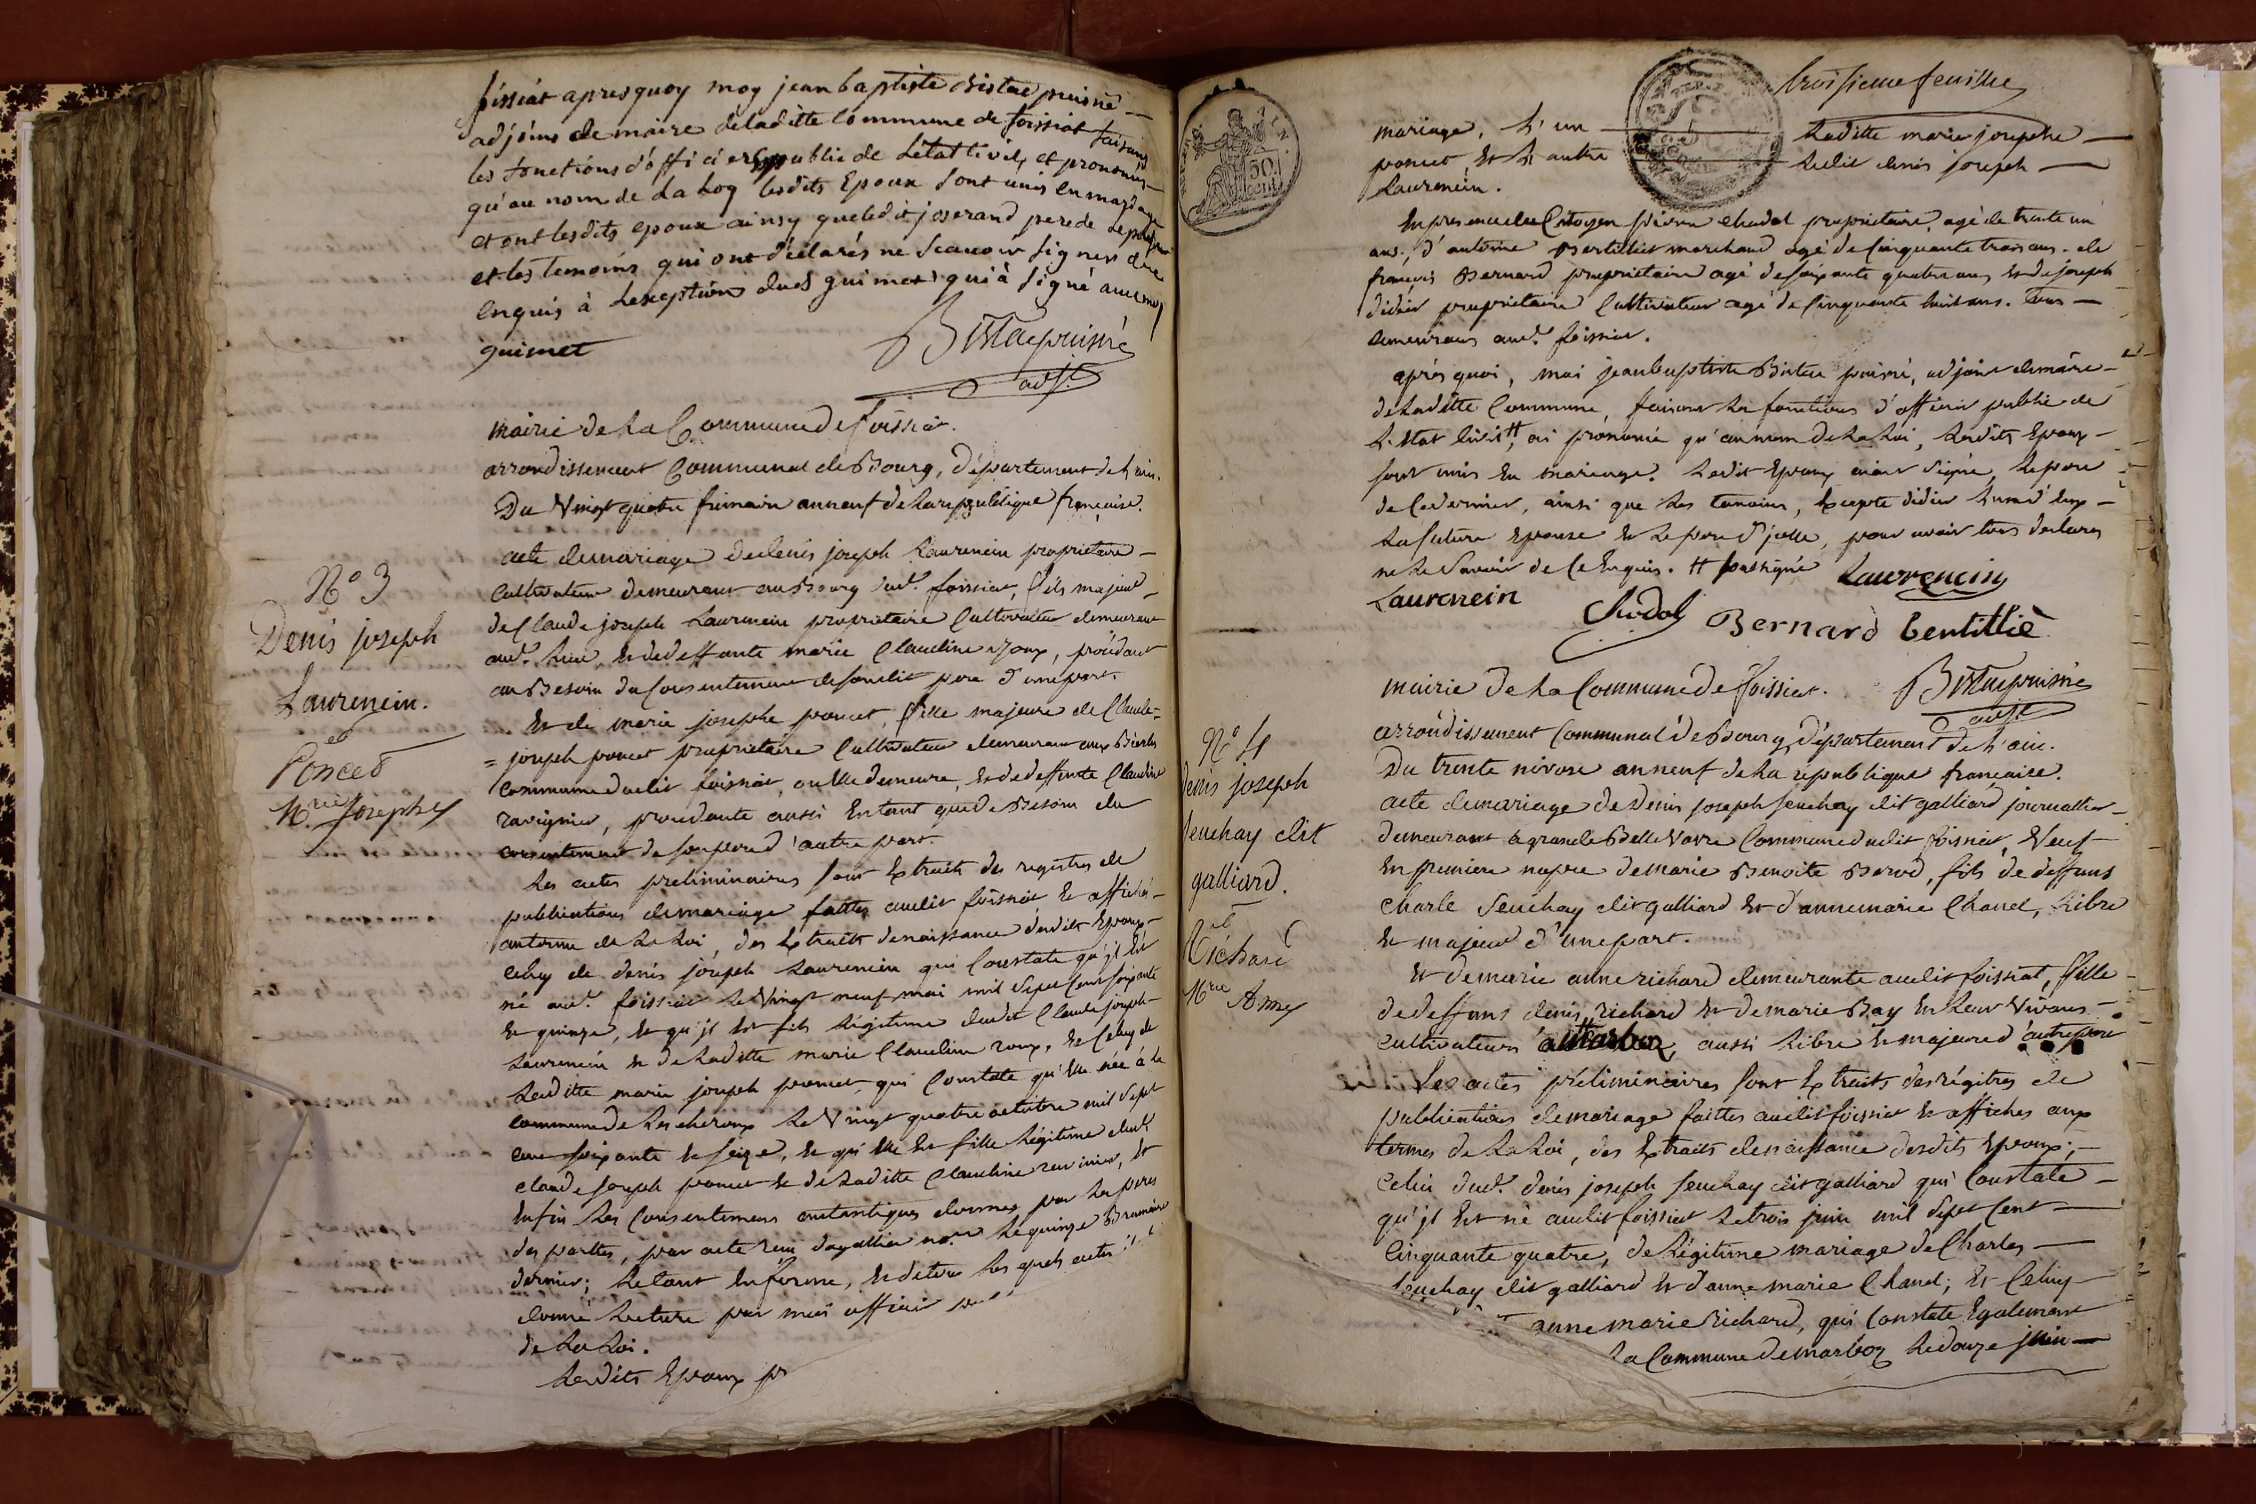 foissiat apres quoy moy jean baptiste Bistac puisné
adjoins de maire de laditte Commune de foissiat faisant
les fonctions d'officier public de L'état civil et prononcés
qu'au nom de La loy lesdits Epoux sont unis en mariage
et ont lesdits epoux ainsy que ledit joserand pere de
et les temoins qui ont déclarés ne scavoir signer de ce
enquis à l'exeption dud guimet qui à signé avec moy
guimet Bistac puisné
adjt
mairie de La Commune de foissiat.
arrondissement Communal de Bourg, Département de l'ain.
Du Vingt quatre frimaire an neuf de la republique française.
N° 3
Denis joseph
Laurencin.
et
Poncet
Mrie Josephe
acte de mariage de denis joseph Laurencin propriétaire
Cultivateur demeurant au Bourg dud. foissiat, fils majeur
de Claude joseph Laurencin propriétaire Cultivateur demeurant
aud. lieu, et de deffunte marie Claudine roux, procédant
au Besoin du Consentement de son dit pere d'une part.
Et de marie josephe poncet, fille majeure de Claude=
=joseph poncet propriétaire Cultivateur demeurant aux
Commune dudit foissiat, ou Elle demeure, et de deffunte Claudine
ravignier, procédante aussi En tant que de Besoin du
consentement de son pere d'autre part.
Les actes preliminaires sont Extraits des registres de
publications de mariage faittes audit foissiat et affichés
auterme de La Loi, des Extraits de naissance desdits Epoux
Celuy de denis joseph Laurencin qui Constate qu'il Est
né aud. foissiat Le Vingt neuf mai mil Sept Cent soixante
et quinze, et qu'il Est fils légitime dudit Claude joseph
Laurencin et de Laditte marie Claudine roux, et Celuy de
Laditte marie joseph poncet qui Constate qu'Elle née à la
commune de Lescheroux Le Vingt quatre octobre mil Sept
cent soixante et seize, et qu'Elle Est fille légitime dud.
claude joseph poncet et de Laditte Claudine ravinier, Et
Enfin Les Consentemens autantiques donnés par Les peres
des parties, par acte reçu dagallier nore Le quinze Brumaire
dernier; Le tout En forme, Et de tous Les quels actes il a
donné Lecture par moi officier
de La Loi.
Lesdits Epoux
troisieme feuille
mariage, L'un Laditte marie josephe
poncet Et L'autre Ledit denis joseph
Laurencin.
En presence des Citoyen pierre chudol propriétaire, agé de trente un
ans, d'antoine Bertillier marchand agé de Cinquante trois ans. de
françois Bernard propriétaire agé de soixante quatre ans, et de joseph
didier propriétaire Cultivateur agé de Cinquante huit ans. Tous
demeurans aud. foissiat.
après quoi, moi jean baptiste Bistac puisné, adjoint de maire
de Laditte Commune, faisant Les fonctions d'officier public de
L'Etat Civil, ai prononcé qu'au nom de La Loi, Lesdits Epoux
sont unis En mariage. Ledit Epoux aiant signé, Le pere
de Ce dernier, ainsi que Les temoins, Excepté didier L'un d'Eux
La future Epouse et Le pere d'jcelle, pour avoir tous déclarés
ne Le Savoir de Ce Enquis. # passigné Laurencin
Laurencin
Chudol Bernard bertillié
Bistac puisné
adjt
mairie de La Commune de foissiat.
arrondissement Communal de Bourg, Département de L'ain.
Du trente nivose an neuf de La république française.
N° 4
denis joseph
seuchay dit
galliard.
et
Richard
Mrie Anne
acte de mariage de Denis joseph seuchay dit galliard journallier
demeurant à grande Belle Vavre Commune dudit foissiat, Veuf
En premiere nopce de marie Benoite Borod, fils de deffunt
Charle seuchay dit galliard et d'anne marie Chanel, Libre
et majeur d'une part.
Et de marie anne richard demeurante audit foissiat, fille
de deffunt denis richard et de marie Bay En Leur Vivans
cultivateurs à Marboz, aussi Libre et majeure d'autre part
Les actes préliminaires sont Extraits des régitres de
publications de mariage faittes audit foissiat et affiches aux
termes de La Loi, des Extraits de naissance desdits Epoux;
Celui dud. denis joseph seuchay dit galliard qui Constate
qu'jl Est né audit foissiat Le trois juin mil Sept Cent
Cinquante quatre, de Légitime mariage de Charles
seuchay dit galliard et d'anne marie Chanel; Et Celuy
anne marie Richard, qui Constate Egalement
La Commune de marboz Le douze juin